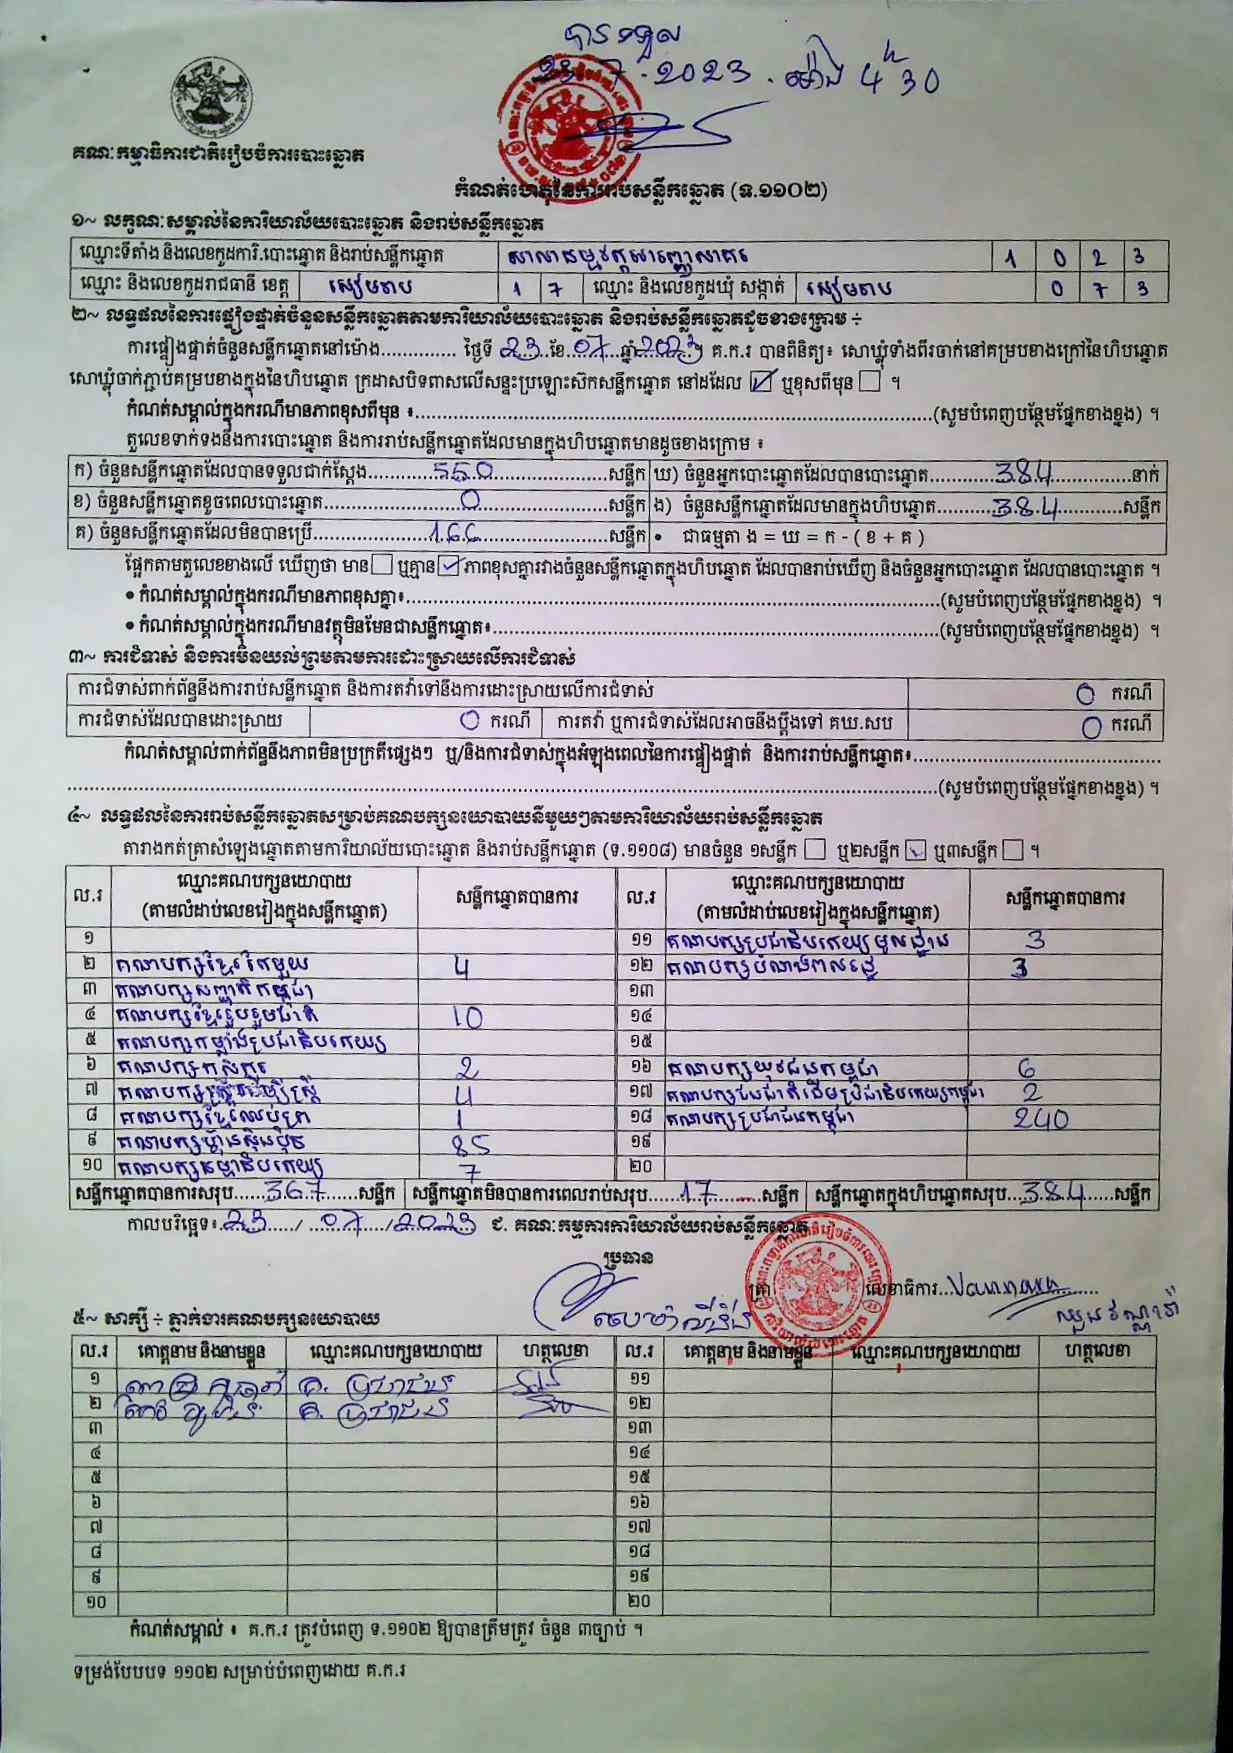 បានទទួល
23.7.2023. ម៉ោង 4h 30
គណៈកម្មាធិការជាតិរៀបចំការបោះឆ្នោត
កំណត់ហេតុនៃការរាប់សន្លឹកឆ្នោត (ទ.១១០២)
១~ លក្ខណៈសម្គាល់នៃការិយាល័យបោះឆ្នោត និងរាប់សន្លឹកឆ្នោត
ឈ្មោះទីតាំង និងលេខកូដការិ.បោះឆ្នោត និងរាប់សន្លឹកឆ្នោត 1 0 2 3
ឈ្មោះ និងលេខកូដរាជធានី ខេត្ត សៀមរាប 1 7 ឈ្មោះ និងលេខកូដឃុំ សង្កាត់ សៀមរាប 0 7 3
២~ លទ្ធផលនៃការផ្ទៀងផ្ទាត់ចំនួនសន្លឹកឆ្នោតតាមការិយាល័យបោះឆ្នោត និងរាប់សន្លឹកឆ្នោតដូចខាងក្រោម ÷
ការផ្ទៀងផ្ទាត់ចំនួនសន្លឹកឆ្នោតនៅម៉ោង.............. ថ្ងៃទី 23 ខែ 07 ឆ្នាំ 2023 ។ គ.ក.រ បានពិនិត្យ៖ សោឃ្លុំទាំងពីរចាក់នៅគម្របខាងក្រៅនៃហិបឆ្នោត
សោឃ្លុំចាក់ភ្ជាប់គម្របខាងក្នុងនៃហិបឆ្នោត ក្រដាសបិទពាសលើសន្ទះប្រឡោះស៊កសន្លឹកឆ្នោត នៅដដែល ☑ ឬខុសពីមុន ☐ ។
កំណត់សម្គាល់ក្នុងករណីមានភាពខុសពីមុន ៖........(សូមបំពេញបន្ថែមផ្នែកខាងខ្នង) ។
តួលេខទាក់ទងនឹងការបោះឆ្នោត និងការរាប់សន្លឹកឆ្នោតដែលមានក្នុងហិបឆ្នោតមានដូចខាងក្រោម ៖
ក) ចំនួនសន្លឹកឆ្នោតដែលបានទទួលជាក់ស្តែង 550 សន្លឹក ឃ) ចំនួនអ្នកបោះឆ្នោតដែលបានបោះឆ្នោត 384 នាក់
ខ) ចំនួនសន្លឹកឆ្នោតខូចពេលបោះឆ្នោត 0 សន្លឹក ង) ចំនួនសន្លឹកឆ្នោតដែលមានក្នុងហិបឆ្នោត 384 សន្លឹក
គ) ចំនួនសន្លឹកឆ្នោតដែលមិនបានប្រើ 166 សន្លឹក • ជាធម្មតា ង = ឃ = ក - ( ខ + គ )
ផ្អែកតាមតួលេខខាងលើ ឃើញថា មាន ☐ ឬគ្មាន ☑ ភាពខុសគ្នារវាងចំនួនសន្លឹកឆ្នោតក្នុងហិបឆ្នោត ដែលបានរាប់ឃើញ និងចំនួនអ្នកបោះឆ្នោត ដែលបានបោះឆ្នោត ។
• កំណត់សម្គាល់ក្នុងករណីមានភាពខុសគ្នា៖........(សូមបំពេញបន្ថែមផ្នែកខាងខ្នង) ។
• កំណត់សម្គាល់ក្នុងករណីមានវត្ថុមិនមែនជាសន្លឹកឆ្នោត៖........(សូមបំពេញបន្ថែមផ្នែកខាងខ្នង) ។
៣~ ការជំទាស់ និងការមិនយល់ព្រមតាមការដោះស្រាយលើការជំទាស់
ការជំទាស់ពាក់ព័ន្ធនឹងការរាប់សន្លឹកឆ្នោត និងការតវ៉ាទៅនឹងការដោះស្រាយលើការជំទាស់ 0 ករណី
ការជំទាស់ដែលបានដោះស្រាយ 0 ករណី ការតវ៉ា ឬការជំទាស់ដែលអាចនឹងប្តឹងទៅ គឃ.សប 0 ករណី
កំណត់សម្គាល់ពាក់ព័ន្ធនឹងភាពមិនប្រក្រតីផ្សេងៗ ឬ/និងការជំទាស់ក្នុងអំឡុងពេលនៃការផ្ទៀងផ្ទាត់ និងការរាប់សន្លឹកឆ្នោត៖........
........(សូមបំពេញបន្ថែមផ្នែកខាងខ្នង) ។
៤~ លទ្ធផលនៃការរាប់សន្លឹកឆ្នោតសម្រាប់គណបក្សនយោបាយនីមួយៗតាមការិយាល័យរាប់សន្លឹកឆ្នោត
តារាងកត់ត្រាសំឡេងឆ្នោតតាមការិយាល័យបោះឆ្នោត និងរាប់សន្លឹកឆ្នោត (ទ.១១០៨) មានចំនួន ១សន្លឹក ☐ ឬ២សន្លឹក ☑ ឬ៣សន្លឹក ☐ ។
ល.រ ឈ្មោះគណបក្សនយោបាយ (តាមលំដាប់លេខរៀងក្នុងសន្លឹកឆ្នោត) សន្លឹកឆ្នោតបានការ ល.រ ឈ្មោះគណបក្សនយោបាយ (តាមលំដាប់លេខរៀងក្នុងសន្លឹកឆ្នោត) សន្លឹកឆ្នោតបានការ
១ ១១ គណបក្សប្រជាធិបតេយ្យមូលដ្ឋាន 3
២ គណបក្សខ្មែរតែមួយ 4 ១២ គណបក្សបំណងពលរដ្ឋ 3
៣ គណបក្សសញ្ជាតិកម្ពុជា ១៣
៤ គណបក្សខ្មែររួបរួមជាតិ 10 ១៤
៥ គណបក្សកម្លាំងប្រជាធិបតេយ្យ ១៥
៦ គណបក្សកសិករ 2 ១៦ គណបក្សយុវជនកម្ពុជា 6
៧ គណបក្សស្ត្រីដើម្បីស្ត្រី 4 ១៧ គណបក្សជនជាតិដើមប្រជាធិបតេយ្យកម្ពុជា 2
៨ គណបក្សខ្មែរឈប់ក្រ 1 ១៨ គណបក្សប្រជាជនកម្ពុជា 240
៩ គណបក្សហ៊្វុនស៊ិនប៉ិច 85 ១៩
១០ គណបក្សធម្មាធិបតេយ្យ 7 ២០
សន្លឹកឆ្នោតបានការសរុប 367 សន្លឹក សន្លឹកឆ្នោតមិនបានការពេលរាប់សរុប 17 សន្លឹក សន្លឹកឆ្នោតក្នុងហិបឆ្នោតសរុប 384 សន្លឹក
កាលបរិច្ឆេទ៖ 23 / 07 / 2023 ជ. គណៈកម្មការការិយាល័យរាប់សន្លឹកឆ្នោត
ប្រធាន
ត្រា លេខាធិការ
៥~ សាក្សី ÷ ភ្នាក់ងារគណបក្សនយោបាយ
ល.រ គោត្តនាម និងនាមខ្លួន ឈ្មោះគណបក្សនយោបាយ ហត្ថលេខា ល.រ គោត្តនាម និងនាមខ្លួន ឈ្មោះគណបក្សនយោបាយ ហត្ថលេខា
១ គ. ប្រជាជន ១១
២ គ. ប្រជាជន ១២
៣ ១៣
៤ ១៤
៥ ១៥
៦ ១៦
៧ ១៧
៨ ១៨
៩ ១៩
១០ ២០
កំណត់សម្គាល់ ៖ គ.ក.រ ត្រូវបំពេញ ទ.១១០២ ឱ្យបានត្រឹមត្រូវ ចំនួន ៣ច្បាប់ ។
ទម្រង់បែបបទ ១១០២ សម្រាប់បំពេញដោយ គ.ក.រ